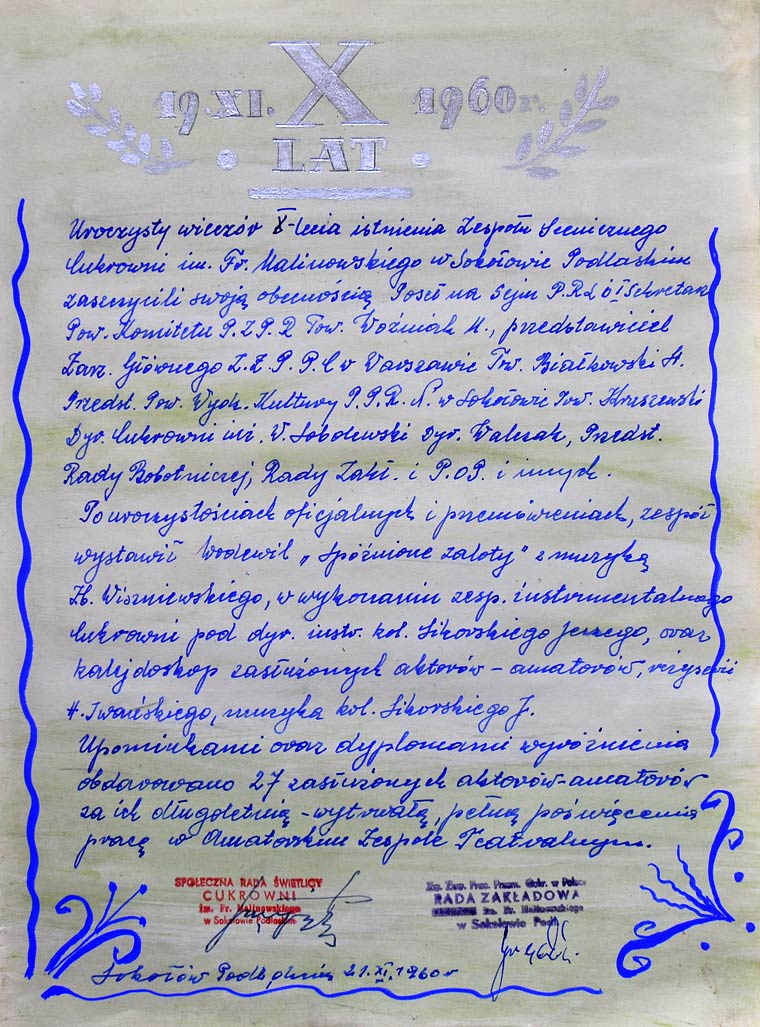 19.XI. X 1960 r.
LAT
Uroczysty wieczór X-lecia istnienia Zespołu Scenicznego
Cukrowni im. Fr. Malinowskiego w Sokołowie Podlaskim
zaszczycili swoją obecnością Poseł na Sejm P.R.L i I Sekretarz
Pow. Komitetu P.Z.P.R Tow. Woźniak M., przedstawiciel
Zarz. Głównego Z.Z.P.P.C w Warszawie Tow. Białkowski A.
Przedst. Pow. Wydz. Kultury P.P.R.N. w Sokołowie Tow. Kruszewski
Dyr. Cukrowni inż. W. Sobolewski Dyr. Walczak, Przedst.
Rady Robotniczej, Rady Zakł. i P.O.P. i innych.
Po uroczystościach oficjalnych i przemówieniach, zespół
wystawił Wodewil „Spóźnione zaloty" z muzyką
Zb. Wiszniewskiego, w wykonaniu zesp. instrumentalnego
Cukrowni pod dyr. instr. kol. Sikorskiego Jerzego, oraz
kalejdoskop zasłużonych aktorów – amatorów, reżyserii
H. Iwańskiego, muzyka kol. Sikorskiego J.
Upominkami oraz dyplomami wyróżnienia
obdarowano 27 zasłużonych aktorów-amatorów
za ich długoletnią – wytrwałą, pełną poświęcenia
pracę w Amatorskim Zespole Teatralnym.
SPOŁECZNA RADA ŚWIETLICY
CUKROWNI
im. Fr. Malinowskiego
w Sokołowie Podlaskim
Zw. Zaw. Prac. Przem. Cukr. w Polsce
RADA ZAKŁADOWA
im. Fr. Malinowskiego
w Sokołowie Podl.
Sokołów Podl., dnia 21.XI.1960 r